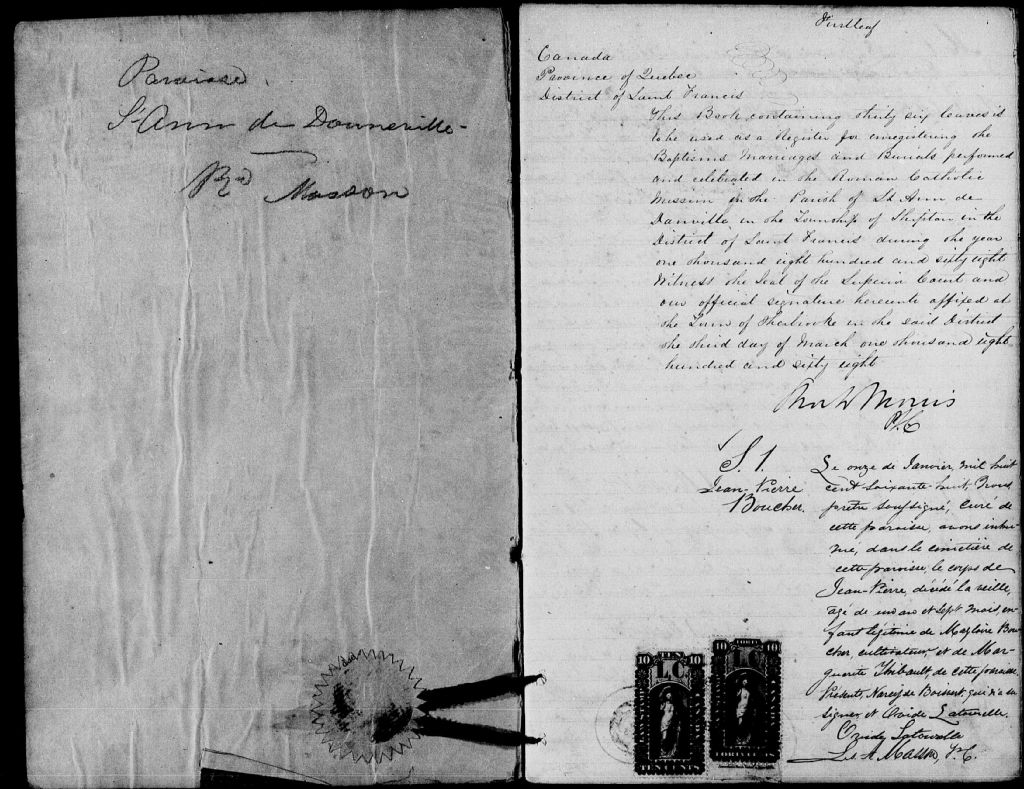 Paroisse
St Ann de Danneville
Rd Masson
First leaf
Canada
Province of Quebec
District of Saint Francis
This Book containing thirty six leaves is
to be used as a Register for enregistering the
Baptisms Marriages and Burials performed
and celebrated in the Roman Catholic
Mission in the Parish of St Ann de
Danville in the Township of Shipton in the
District of Saint Francis during the year
one thousand eight hundred and sixty eight
Witness the Seal of the Superior Court and
our official signature hereunto affixed at
the Town of Sherbrooke in the said District
the third day of March one thousand eight
hundred and sixty eight
Morris
S. 1.
Jean-Pierre
Boucher.
Le onze de Janvier, mil huit
cent soixante-huit, Nous
prêtre soussigné, Curé de
cette paroisse, avons inhu-
mé, dans le cimetière de
cette paroisse, le corps de
Jean-Pierre, décédé la veille,
agé de un an et sept mois, en-
fant légitime de Magloire Bou-
cher, cultivateur, et de Mar-
guerite Thibault, de cette paroisse.
Présents, Narcisse qui n'a su
signer, et Ovide
Ovide
TEN
10 10
LC
TEN CENTS
10 10
LC